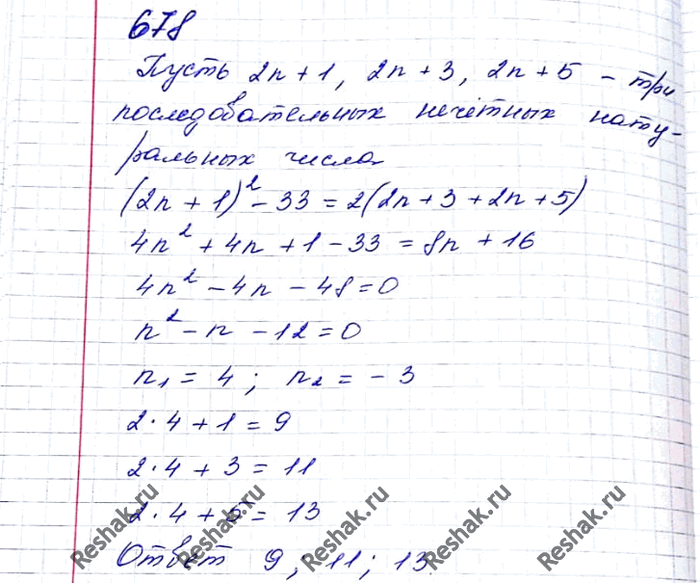 678
Пусть 2n + 1, 2n + 3, 2n + 5 – три
последовательных нечётных нату-
ральных числа
(2n + 1)² - 33 = 2(2n + 3 + 2n + 5)
4n² + 4n + 1 - 33 = 8n + 16
4n² - 4n - 48 = 0
n² - n - 12 = 0
n₁ = 4 ; n₂ = - 3
2·4 + 1 = 9
2·4 + 3 = 11
2·4 + 5 = 13
Ответ 9 ; 11 ; 13
Reshak.ru
Reshak.ru
Reshak.ru
Reshak.ru
Reshak.ru